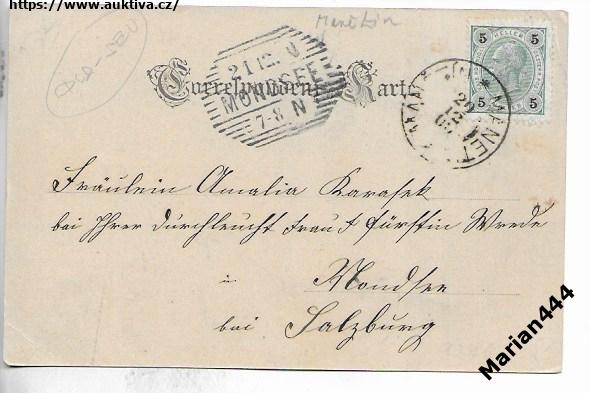 https://www.auktiva.cz/
Manětín
Correspondenz-Karte
21 12 0
MONDSEE
7-8 N
5 HELLER 5
5 5
MANET
20
12
Fräulein Amalia Karasek
bei Ihrer Durchleucht Frau Fürstin Wrede
in
Mondsee
bei Salzburg
Marian444